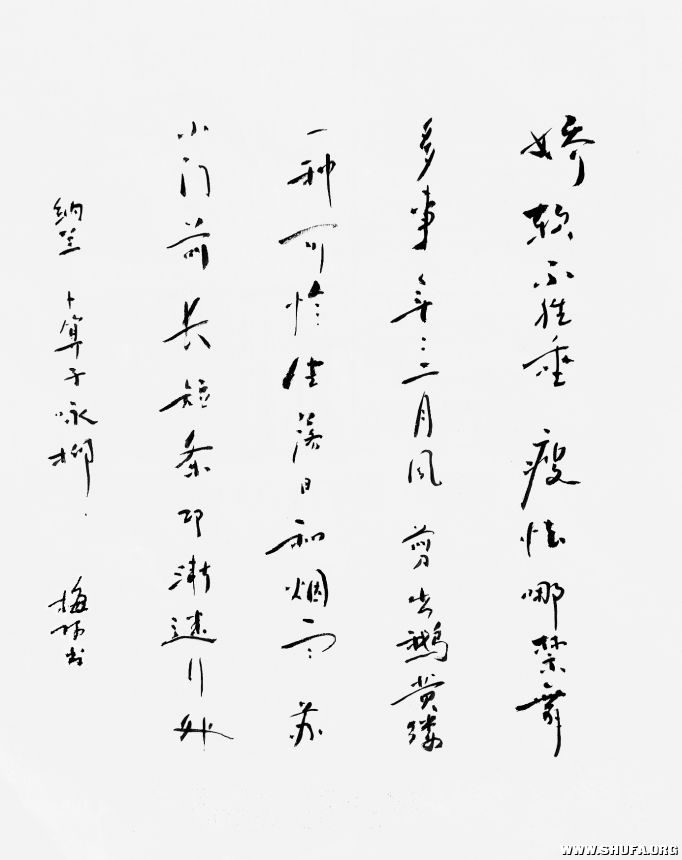 娇软不胜垂 瘦怯哪禁舞
多事年々二月风 剪出鹅黄缕
一种可怜生落日和烟雨 苏
小门前长短条即渐迷行处
纳兰 卜算子咏柳 梅书
WWW.SHUFA.ORG